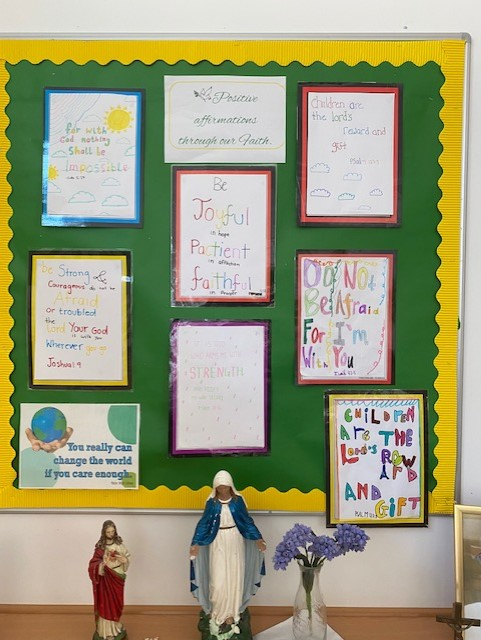 Positive
affirmations
through our Faith.
for with
God nothing
Shall be
Impossible
Children are
the lords
reward and
gift
Be
Joyful
in hope
Pactient
in affliction
Faithful
in prayer
be Strong
Courageous do not be
Afraid
or troubled
the
Lord Your God
is with you
Wherever you go
Joshua 1:9
Do Not
Be Afraid
For I'm
With You
STRENGTH
You really can
change the world
if you care enough.
CHILDREN
Are THE
Lord's REW
ARD
AND
GIFT